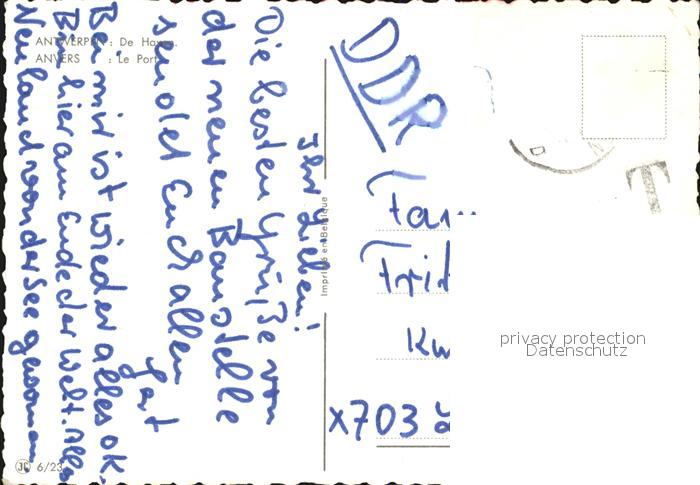 ANTWERPEN : De Haven.
ANVERS : Le Port
Ihr Lieben!
Die besten Grüße von
der neuen Baustelle
sendet Euch allen
Bei mir ist wieder alles ok.
Bin hier am Ende der Welt. Alles
Neuland von der See gewonnen
Imprimé en Belgique
DDR
Fam
Frit
x703
T
6/23
privacy protection
Datenschutz